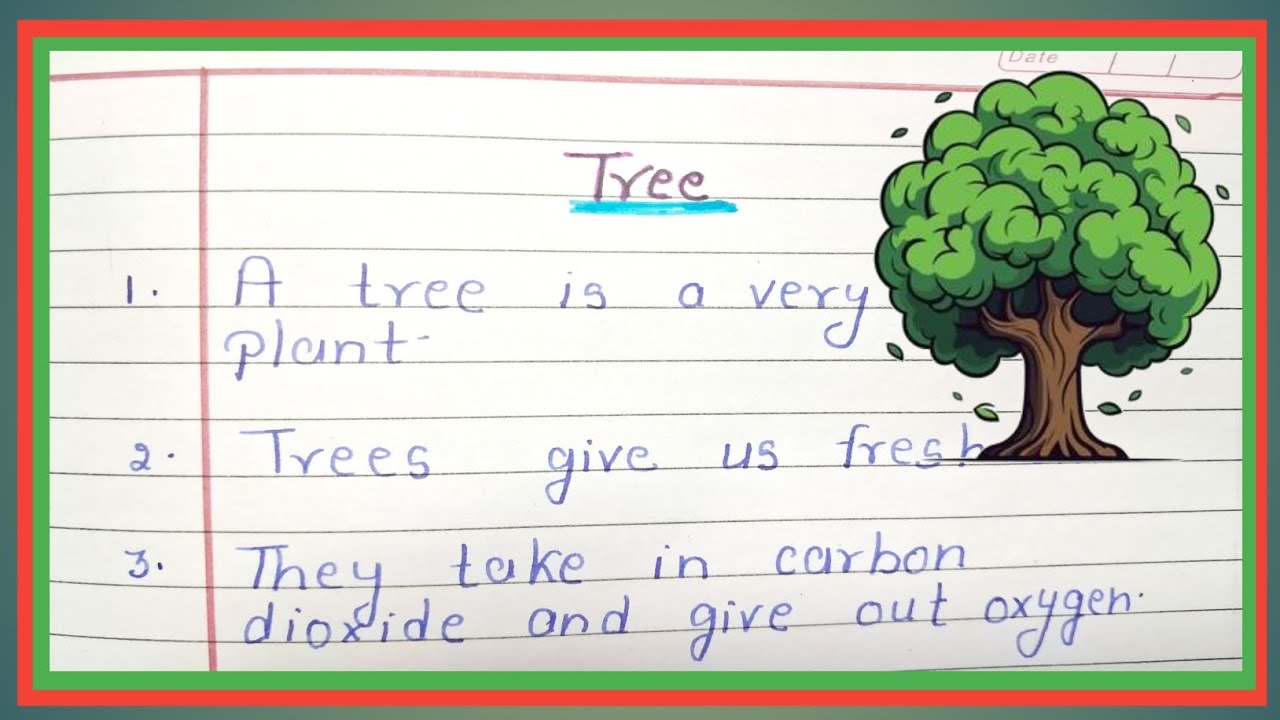 Date
Tree
1. A tree is a very
plant.
2. Trees give us fresh
3. They take in carbon
dioxide and give out oxygen.